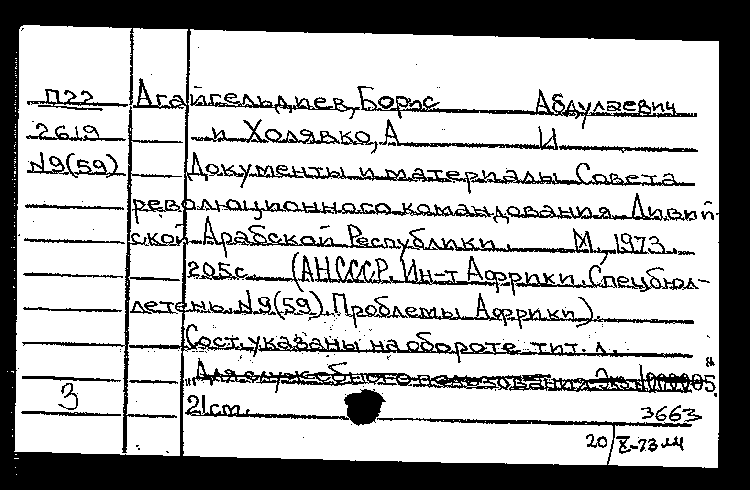 П22 Агайгельдиев, Борис Абдулаевич
2619 и Холявко, А И
N9(59) Документы и материалы Совета
революционного командования Ливий-
ской Арабской Республики. М., 1973.
205с. (АНСССР. Ин-т Африки. Спецбюл-
летень N9(59). Проблемы Африки).
Сост. указаны на обороте тит. л.
„Для служебного пользования. Экз. N000005"
3 21cm. 3663
20/X-73